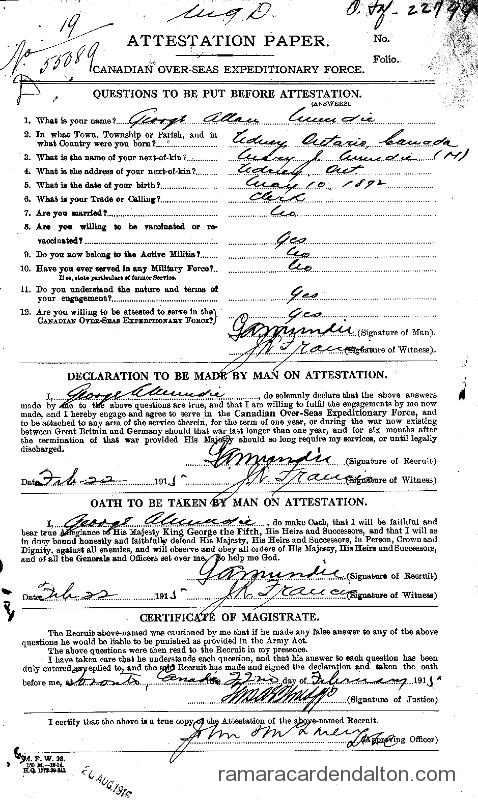 M.D.
19
ATTESTATION PAPER.
No.
No 55089
Folio.
CANADIAN OVER-SEAS EXPEDITIONARY FORCE.
QUESTIONS TO BE PUT BEFORE ATTESTATION.
(ANSWERS).
1. What is your name? George Allan Mundie
2. In what Town, Township or Parish, and in
what Country were you born? Udney Ontario, Canada
3. What is the name of your next-of-kin? Mary J. Mundie (M)
4. What is the address of your next-of-kin? Udney, Ont.
5. What is the date of your birth? May 10. 1892
6. What is your Trade or Calling? Clerk
7. Are you married? No
8. Are you willing to be vaccinated or re-
vaccinated? Yes
9. Do you now belong to the Active Militia? No
10. Have you ever served in any Military Force? No
If so, state particulars of former Service.
11. Do you understand the nature and terms of
your engagement? Yes
12. Are you willing to be attested to serve in the
CANADIAN OVER-SEAS EXPEDITIONARY FORCE? Yes
GAMundie (Signature of Man).
J.R. Francis (Signature of Witness).
DECLARATION TO BE MADE BY MAN ON ATTESTATION.
I, George A Mundie, do solemnly declare that the above answers
made by me to the above questions are true, and that I am willing to fulfil the engagements by me now
made, and I hereby engage and agree to serve in the Canadian Over-Seas Expeditionary Force, and
to be attached to any arm of the service therein, for the term of one year, or during the war now existing
between Great Britain and Germany should that war last longer than one year, and for six months after
the termination of that war provided His Majesty should so long require my services, or until legally
discharged.
GAMundie (Signature of Recruit)
Date Feb 22 1915 J.R. Francis (Signature of Witness)
OATH TO BE TAKEN BY MAN ON ATTESTATION.
I, George A Mundie, do make Oath, that I will be faithful and
bear true Allegiance to His Majesty King George the Fifth, His Heirs and Successors, and that I will as
in duty bound honestly and faithfully defend His Majesty, His Heirs and Successors, in Person, Crown and
Dignity, against all enemies, and will observe and obey all orders of His Majesty, His Heirs and Successors,
and of all the Generals and Officers set over me. So help me God.
GAMundie (Signature of Recruit)
Date Feb. 22 1915 J.R. Francis (Signature of Witness)
CERTIFICATE OF MAGISTRATE.
The Recruit above-named was cautioned by me that if he made any false answer to any of the above
questions he would be liable to be punished as provided in the Army Act.
The above questions were then read to the Recruit in my presence.
I have taken care that he understands each question, and that his answer to each question has been
duly entered as replied to, and the said Recruit has made and signed the declaration and taken the oath
before me, at Toronto, Canada this 22nd day of February 1915
(Signature of Justice)
I certify that the above is a true copy of the Attestation of the above-named Recruit.
John (Approving Officer)
M. F. W. 23.
26 AUG. 1915
ramaracardendalton.com